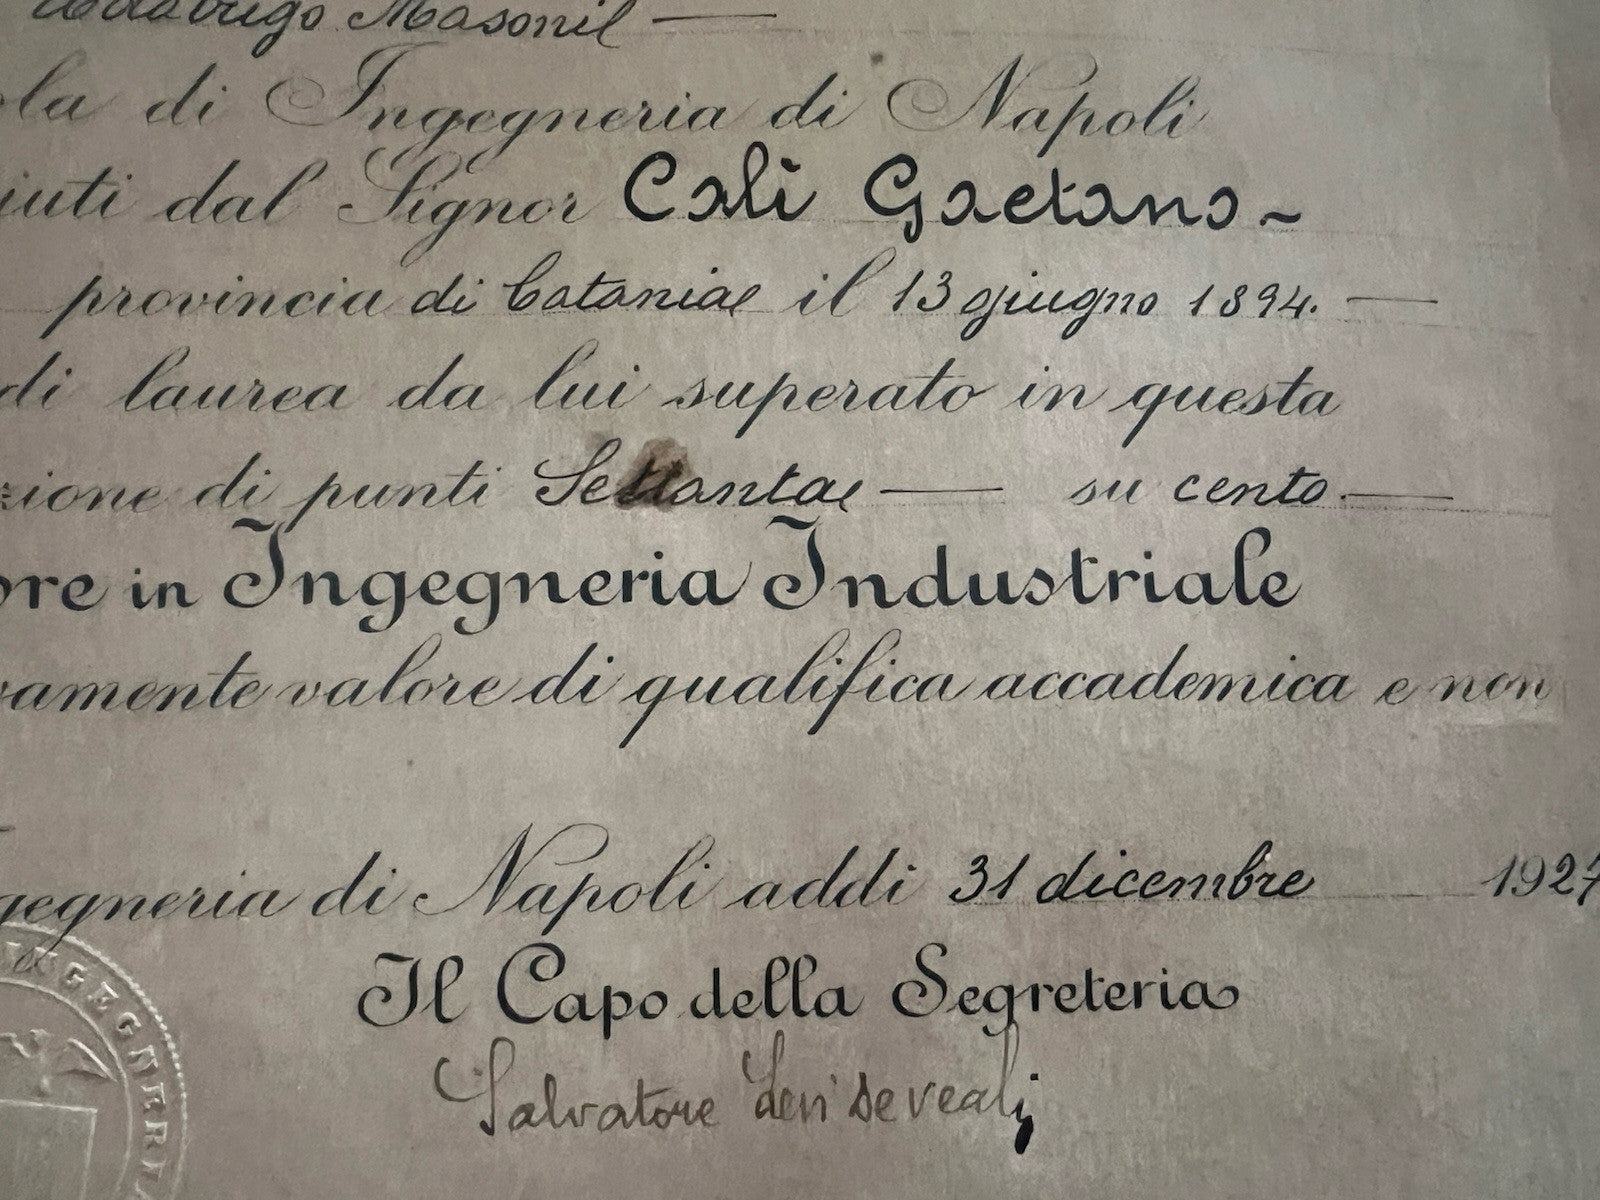 di Ingegneria di Napoli
dal Signor Calì Gaetano ~
provincia di Catania il 13 giugno 1894.
di laurea da lui superato in questa
zione di punti Settanta su cento.
ore in Ingegneria Industriale
vamente valore di qualifica accademica e non
gegneria di Napoli addì 31 dicembre 1927
Il Capo della Segreteria
Salvatore
INGEGNERIA